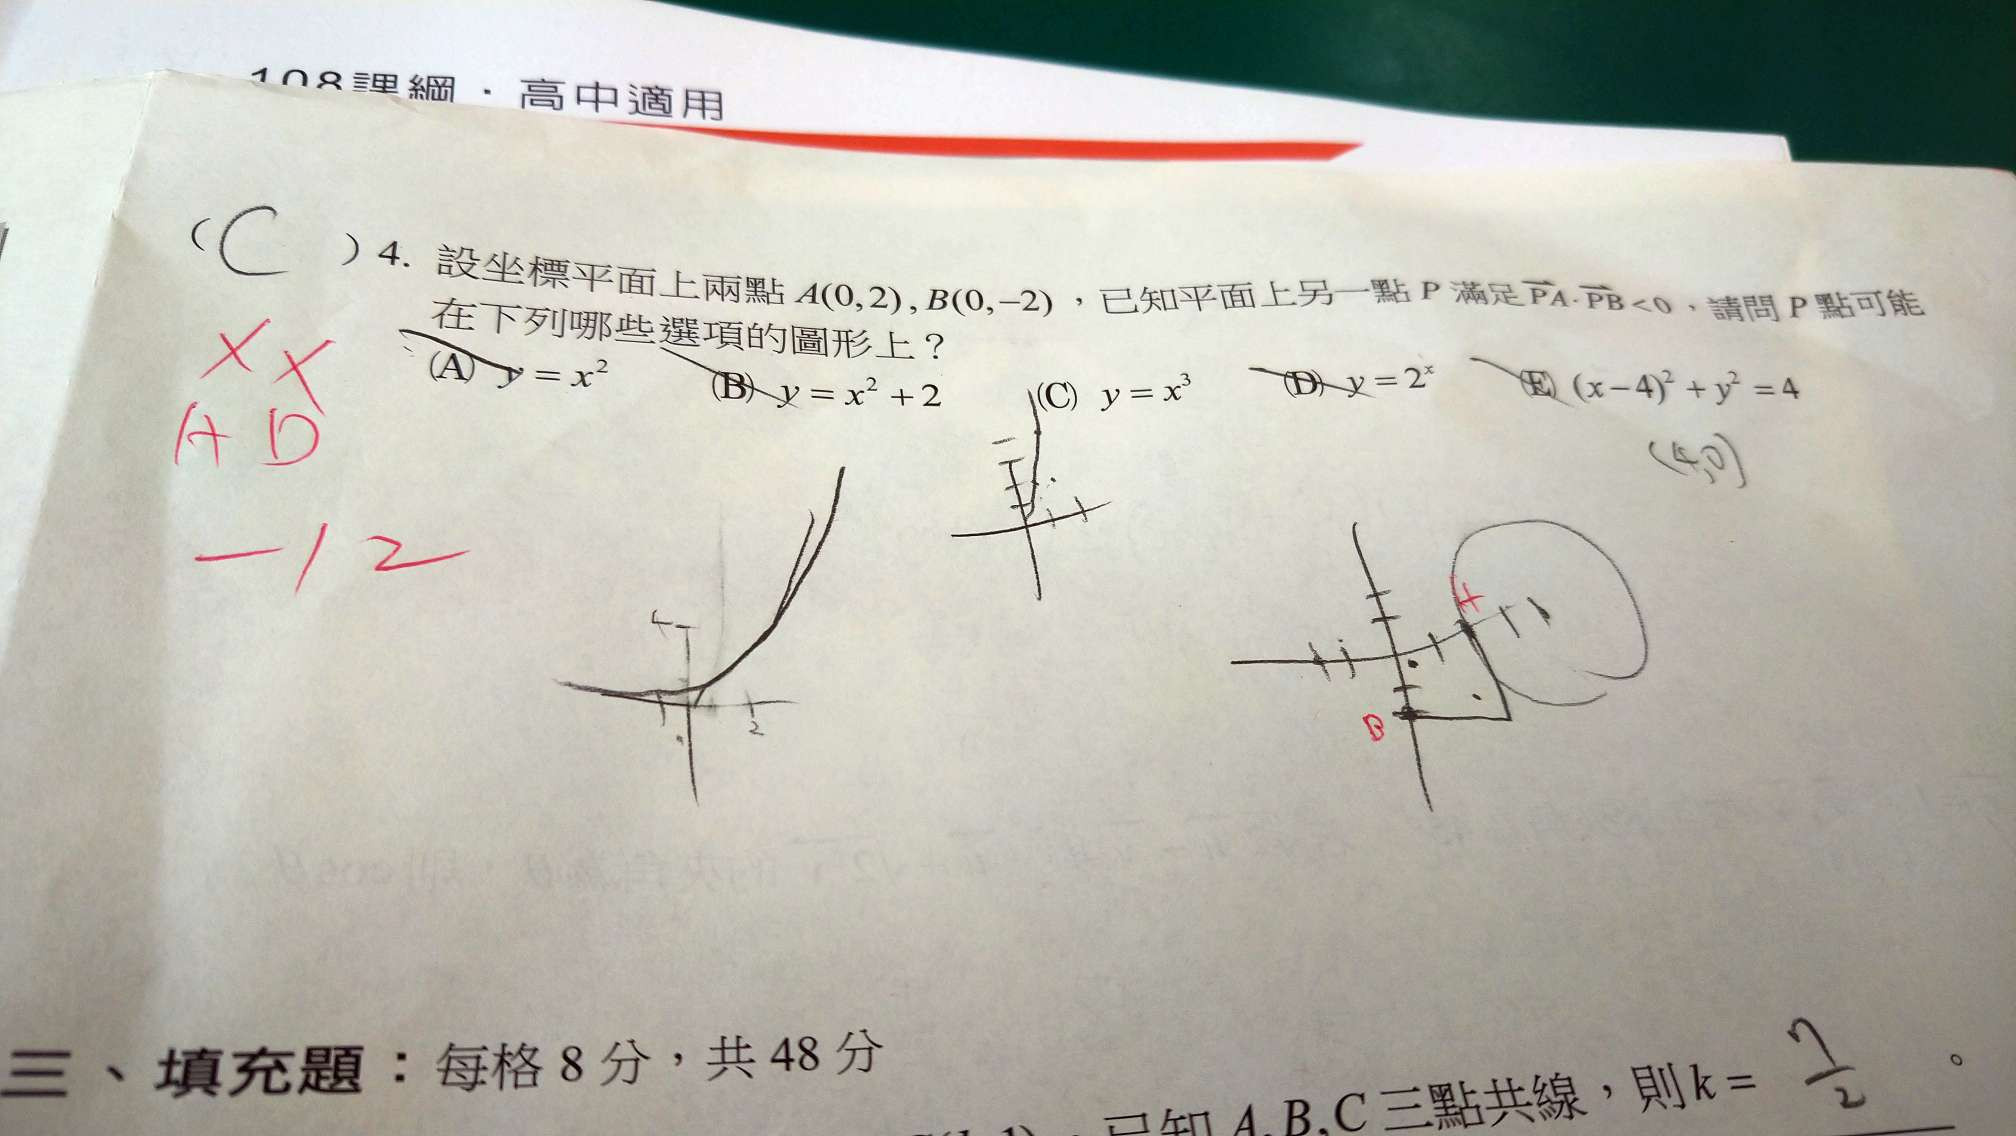 108課綱．高中適用
( C ) 4. 設坐標平面上兩點 A(0,2), B(0,−2)，已知平面上另一點 P 滿足 \overrightarrow{PA}·\overrightarrow{PB}<0，請問 P 點可能
在下列哪些選項的圖形上？
(A) y = x² (B) y = x² + 2 (C) y = x³ (D) y = 2ˣ (E) (x−4)² + y² = 4
(4,0)
A D
−12
2
A
B
三、填充題：每格 8 分，共 48 分
已知 A, B, C 三點共線，則 k = 7/2 。